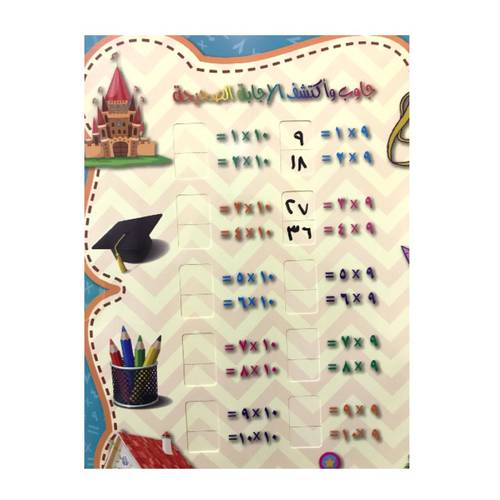 جاوب وأكتشف الإجابة الصحيحة
٩ × ١ = ٩ ١٠ × ١ =
٩ × ٢ = ١٨ ١٠ × ٢ =
٩ × ٣ = ٢٧ ١٠ × ٣ =
٩ × ٤ = ٣٦ ١٠ × ٤ =
٩ × ٥ = ١٠ × ٥ =
٩ × ٦ = ١٠ × ٦ =
٩ × ٧ = ١٠ × ٧ =
٩ × ٨ = ١٠ × ٨ =
٩ × ٩ = ١٠ × ٩ =
٩ × ١٠ = ١٠ × ١٠ =